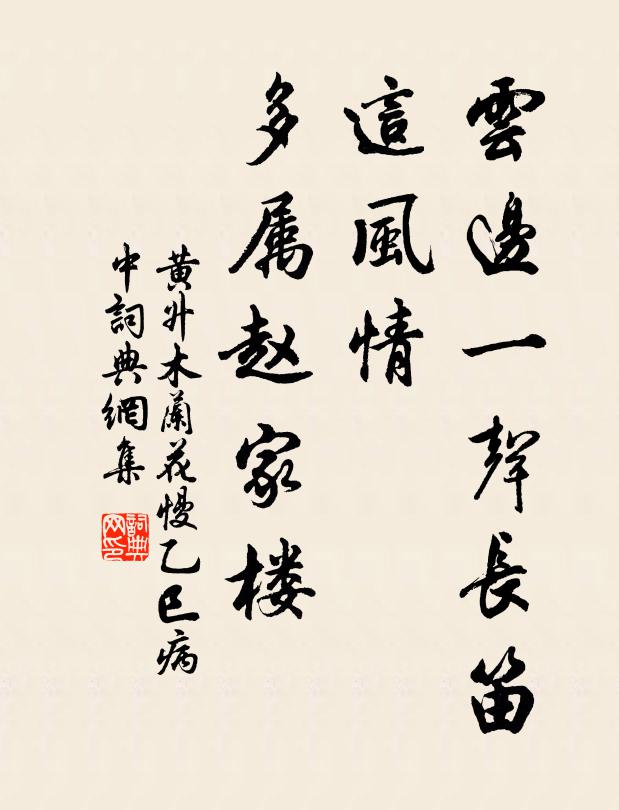 雲邊一聲長笛
這風情
多属赵家楼
黄升木蘭花慢乙巳病
中詞典網集
詞典网印